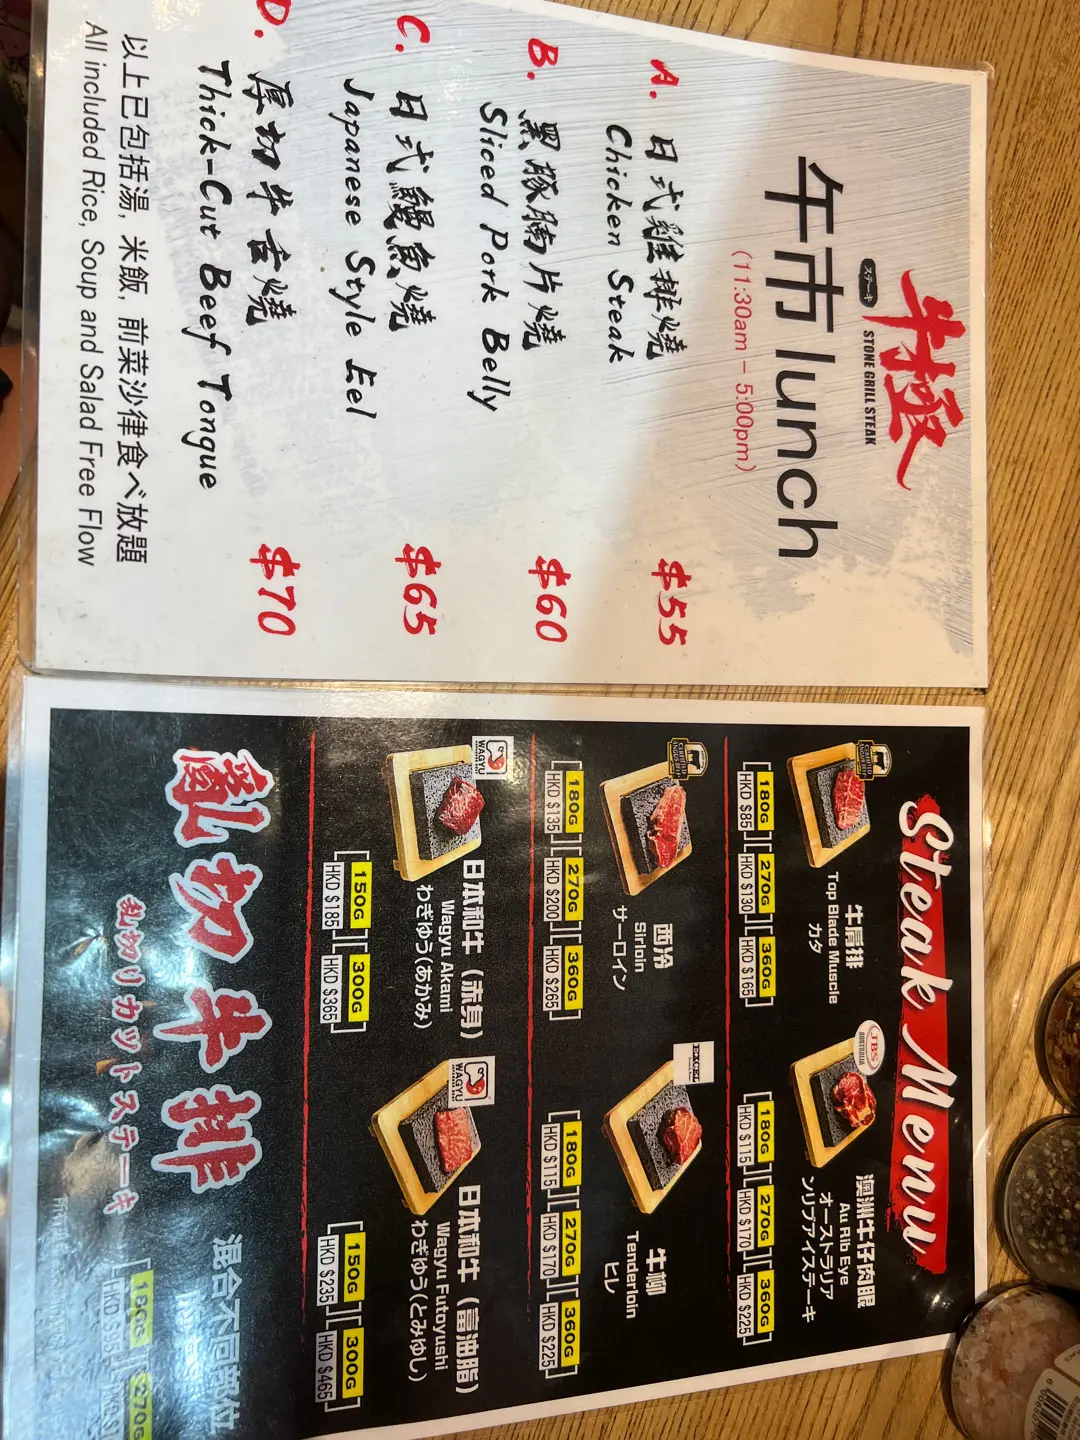 ステーキ
牛極
STONE GRILL STEAK
午市 lunch
(11:30am – 5:00pm)
A. 日式雞排燒 $55
Chicken Steak
B. 黑豚腩片燒 $60
Sliced Pork Belly
C. 日式鰻魚燒 $65
Japanese Style Eel
D. 厚切牛舌燒 $70
Thick-Cut Beef Tongue
以上已包括湯, 米飯, 前菜沙律食べ放題
All included Rice, Soup and Salad Free Flow
Steak Menu
牛肩排
Top Blade Muscle
カタ
180G 270G 360G
HKD $85 HKD $130 HKD $165
JBS
AUSTRALIA
澳洲牛仔肉眼
Au Rib Eye
オーストラリア
ンリブアイステーキ
180G 270G 360G
HKD $115 HKD $170 HKD $225
西冷
Sirloin
サーロイン
180G 270G 360G
HKD $135 HKD $200 HKD $265
牛柳
Tenderloin
ヒレ
180G 270G 360G
HKD $115 HKD $170 HKD $225
WAGYU
日本和牛（赤身）
Wagyu Akami
わぎゆう(あかみ)
150G 300G
HKD $185 HKD $365
WAGYU
日本和牛（富油脂）
Wagyu Futoyushi
わぎゆう(とみゆし)
150G 300G
HKD $235 HKD $465
亂切牛排
乱切りカットステーキ
混合不同部位
180G 270G
HKD $95